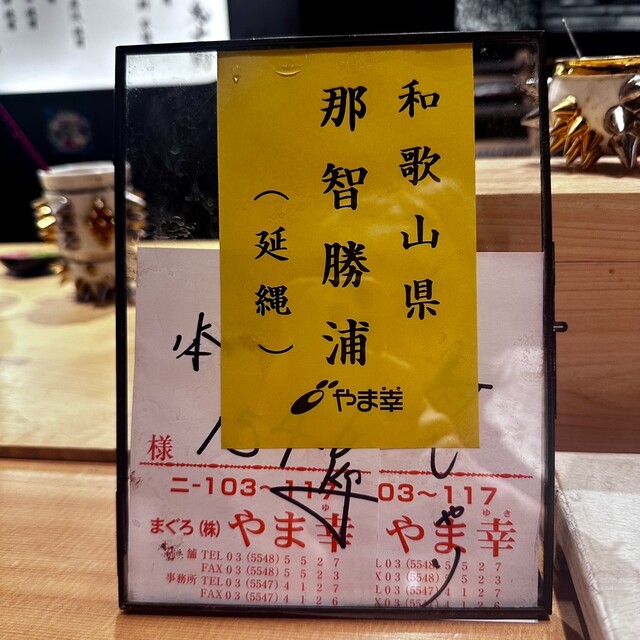 和歌山県
那智勝浦
(延縄)
やま幸
本
様
ニ-103〜117
03〜117
まぐろ(株)やま幸
ゆ
やま幸
ゆき
舗 TEL 03(5548)5527
FAX 03(5548)5523
事務所 TEL 03(5547)4127
FAX 03(5547)4126
L 03(5548)5527
X 03(5548)5523
L 03(5547)4127
X 03(5547)4126